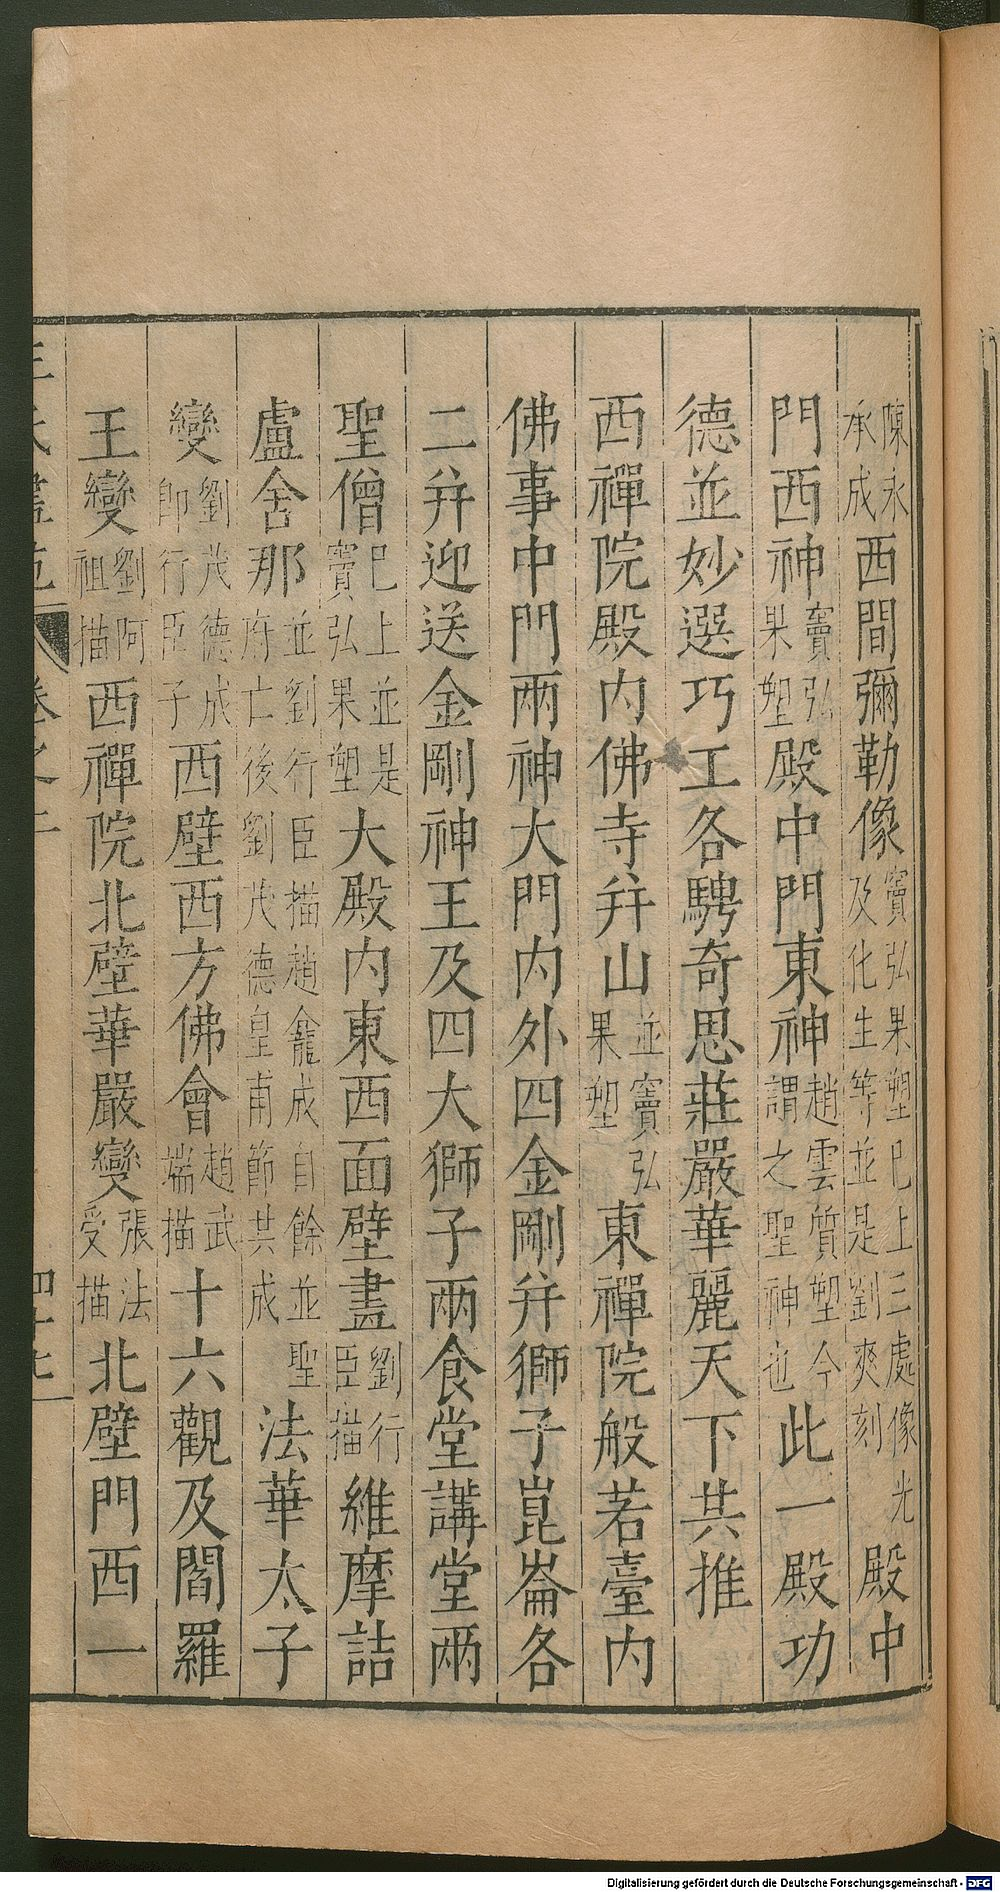 陳永承成西間彌勒像竇弘果塑已上三處像光及化生等並是劉爽刻殿中
門西神竇弘果塑殿中門東神趙雲質塑今謂之聖神也此一殿功
德並妙選巧工各騁奇思莊嚴華麗天下共推
西禪院殿內佛寺并山並竇弘果塑東禪院般若臺內
佛事中門兩神大門內外四金剛并獅子崑崙各
二并迎送金剛神王及四大獅子兩食堂講堂兩
聖僧已上並是竇弘果塑大殿內東西面壁畫劉行臣描維摩詰
盧舍那並劉行臣描趙龕成自餘並聖府亡後劉茂德皇甫節共成法華太子
變劉茂德成即行臣子西壁西方佛會趙武端描十六觀及閻羅
王變劉阿祖描西禪院北壁華嚴變張法受描北壁門西一
王氏畫苑 卷之二 四十七
Digitalisierung gefördert durch die Deutsche Forschungsgemeinschaft - DFG